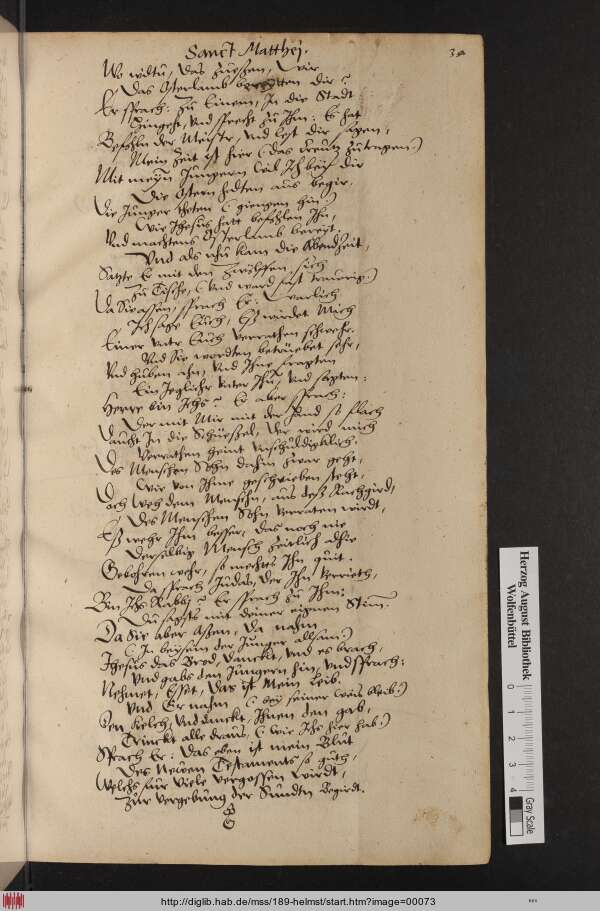 Sanct Matthej.
Wo wiltu, das zueßen, wir
Das Osterlamb dir?
Er sprach: Zu Einem, In die Stadt
Hingeht, Vnd sprecht zu Ihm: Es hat
der Meister, Vnd lest dir sagen,
Mein Zeit ist hier (das Creutz zutragen.)
Mit meyn Jungern weil Ich beis dir
Die Ostern halten aus begir.
Die Junger theten (giengen hin)
Wie Jhesus hatt befohlen Ihn,
Vnd machtens Osterlamb bereyt.
Vnd als nhu kam die Abendzeit,
Satzte Er mit den Zwölffen sich
Zu Tische, (Vnd ward fast traurig.)
Da Sie assen, sprach Er: warlich
Ich sage Euch, Eß wirdet Mich
Einer vntr Euch verrathen
Vnd Sie wordten betrüebet sehr,
Vnd huben ahn, Vnd Ihne fragten
Ein Jeglicher vnter Ihn, Vnd sagten:
Herre bin Ichs? Er aber sprach:
Der mit Mir mit der Hand so flach
Taucht In die Schüeßel, der wird mich
Verrathen heint
Des Menschen Sohn dahin zwar geht,
Wie von Ihme geschrieben steht,
Doch weh dem Menschn, aus deß
Des Menschen Sohn verraten wirdt,
Eß wehr Ihm besser, das noch nie
Derselbig Mensch zeitlich alhie
Gebohren wehr, so
Da sprach Judas, der Ihn verrieth,
Bin Ichs Rabbj? Er sprach zu Ihm:
Du sagsts mit deiner eignen Stim.
Da Sie aber Aßen, Da nahm
(In beysein der Junger allsam)
Jhesus das Brod, danckt, Vnd es brach,
Vnd gabs den Jungern hin, Vnd sprach:
Nehmet, Eßet, das ist Mein Leib.
Vnd Er nahm (bey seiner weis bleib.)
Den Kelch, Vnd danckt, Ihnen den gab,
Trinckt alle draus (wie Ichs hier hab.)
Sprach Er: das eben ist mein Blut
Des Newen Testaments so guth,
Welchs fur Viele vergossen wirdt,
Zur vergebung der Sundtn begirdt.
Herzog August Bibliothek
Wolfenbüttel
0 1 2 3 4
Gray Scale
http://diglib.hab.de/mss/189-helmst/start.htm?image=00073